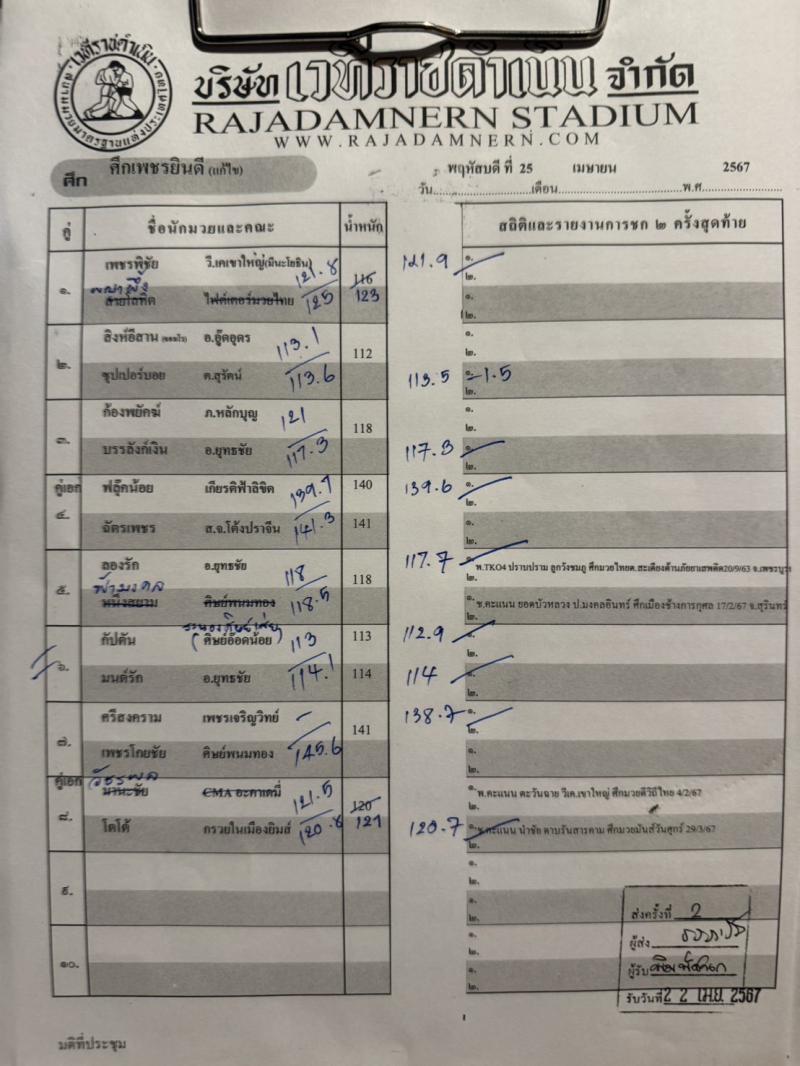 เวทีราชดำเนิน
บริษัท เวทีราชดำเนิน จำกัด
RAJADAMNERN STADIUM
WWW.RAJADAMNERN.COM
ศึก ศึกเพชรยินดี (แก้ไข)
วัน พฤหัสบดี ที่ 25 เดือน เมษายน พ.ศ. 2567
คู่ ชื่อนักมวยและคณะ น้ำหนัก สถิติและรายงานการชก ๒ ครั้งสุดท้าย
๑. เพชรพิชัย วี.เคเขาใหญ่(มีนะโยธิน) 121.8 116 121.9 ๑.
๒.
สายโลหิต ไฟต์เตอร์มวยไทย 125 123 ๑.
๒.
๒. สิงห์อีสาน อ.อู๊ดอุดร 113.1 112 ๑.
๒.
ซุปเปอร์บอย ต.สุรัตน์ 113.6 113.5 ๑. -1.5
๒.
๓. ก้องพยัคฆ์ ภ.หลักบุญ 121 118 ๑.
๒.
บรรลังก์เงิน อ.ยุทธชัย 117.3 117.3 ๑.
๒.
คู่เอก ๔. ฟลุ๊คน้อย เกียรติฟ้าลิขิต 139.7 140 139.6 ๑.
๒.
ฉัตรเพชร ส.จ.โต้งปราจีน 141.3 141 ๑.
๒.
๕. ลองรัก อ.ยุทธชัย 118 118 117.7 ๑. พ.TKO4 ปราบปราม ลูกวังชมภู ศึกมวยไทยต.สะเดียงต้านภัยยาเสพติด20/9/63 จ.เพชรบูรณ์
๒.
ฟ้ามงคล
หนึ่งสยาม ศิษย์พนมทอง 118.5 ๑. ช.คะแนน ยอดบัวหลวง ป.มงคลอินทร์ ศึกเมืองช้างการกุศล 17/2/67 จ.สุรินทร์
๒.
๖. กัปตัน (ศิษย์อ๊อดน้อย) 113 113 112.9 ๑.
๒.
มนต์รัก อ.ยุทธชัย 114.1 114 114 ๑.
๒.
๗. ศรีสงคราม เพชรเจริญวิทย์ 141 138.7 ๑.
๒.
เพชรโกยชัย ศิษย์พนมทอง 145.6 ๑.
๒.
คู่เอก วัชรพล
๘. มานะชัย CMA อะคาเดมี่ 121.5 120 ๑. พ.คะแนน ตะวันฉาย วีเค.เขาใหญ่ ศึกมวยดีวิถีไทย 4/2/67
๒.
โตโต้ กรวยในเมืองยิมส์ 120.8 121 120.7 ๑. ช.คะแนน นำชัย ดาบรันสารคาม ศึกมวยมันส์วันศุกร์ 29/3/67
๒.
๙. ๑.
๒.
๑.
๒.
๑๐. ๑.
๒.
๑.
๒.
ส่งครั้งที่ 2
ผู้ส่ง
ผู้รับ
รับวันที่ 22 เม.ย. 2567
มติที่ประชุม